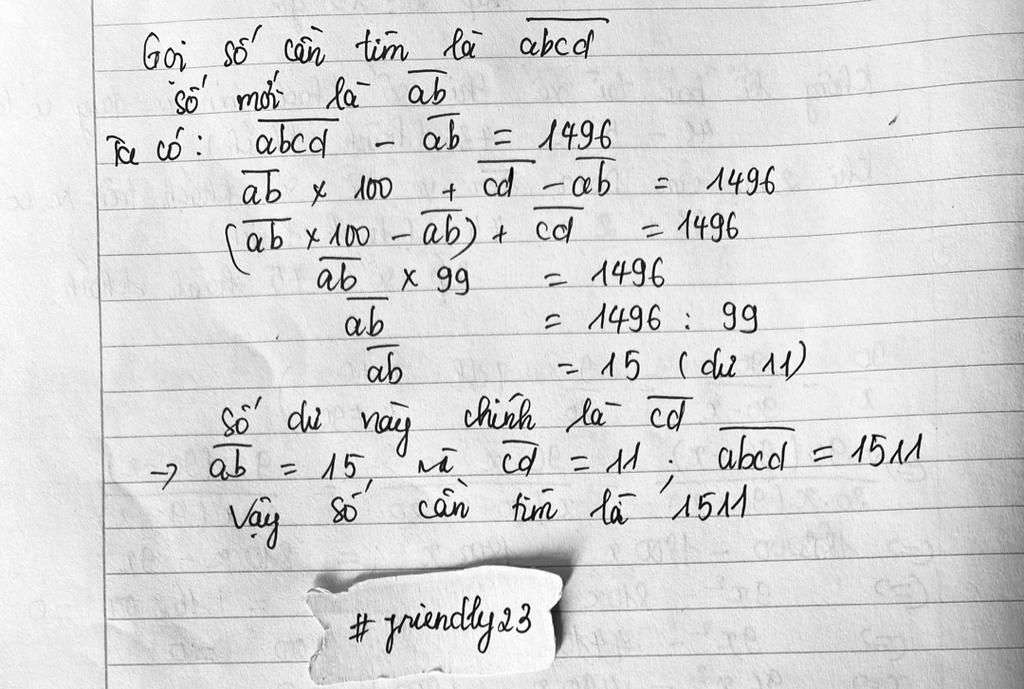 Gọi số cần tìm là abcd
số mới là ab
Ta có: abcd - ab = 1496
ab x 100 + cd - ab = 1496
(ab x 100 - ab) + cd = 1496
ab x 99 = 1496
ab = 1496 : 99
ab = 15 (dư 11)
Số dư này chính là cd
→ ab = 15, và cd = 11; abcd = 1511
Vậy số cần tìm là 1511
# friendly23